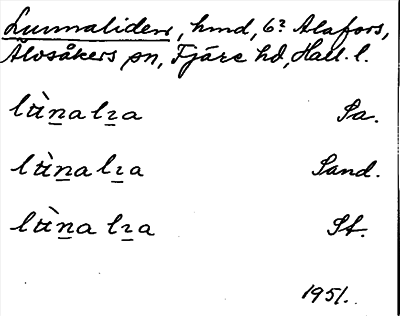 Lunnaliden, hmd, 6² Alafors,
Älvsåkers sn, Fjäre hd, Hall. l.
lttn̲a lı̲a Sa.
lttn̲a lı̲a Sand.
lttn̲a lı̲a St.
1951.